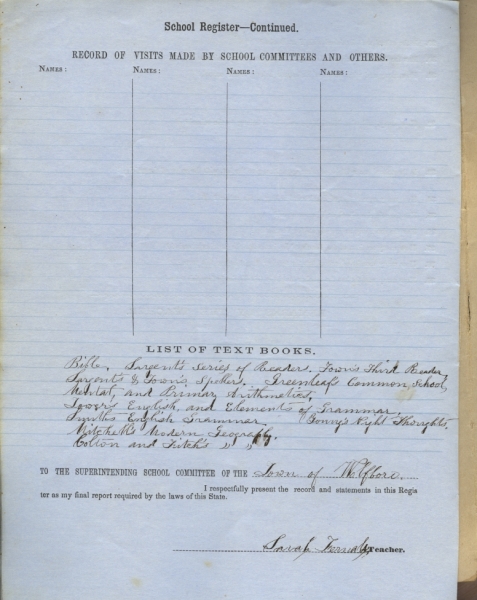 School Register—Continued.
RECORD OF VISITS MADE BY SCHOOL COMMITTEES AND OTHERS.
NAMES: NAMES: NAMES: NAMES:
LIST OF TEXT BOOKS.
Bible, Sargent's Series of Readers. Town's Third Reader
Sargent's & Town's Spellers. Greenleaf's Common School,
Mental, and Primary Arithmetics,
Tower's English, and Elements of Grammar.
Smith's English Grammar. Night Thoughts.
Mitchell's Modern Geography.
Colton and Fitch's " "
TO THE SUPERINTENDING SCHOOL COMMITTEE OF THE Town of Wolfboro.
I respectfully present the record and statements in this Regis
ter as my final report required by the laws of this State.
Sarah Teacher.